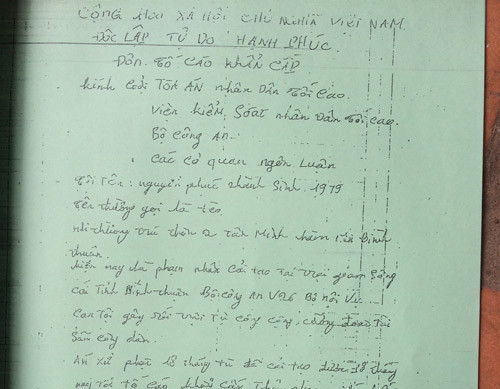 CỘNG HÒA XÃ HỘI CHỦ NGHĨA VIỆT NAM
ĐỘC LẬP TỰ DO HẠNH PHÚC
ĐƠN TỐ CÁO KHẨN CẤP
kính gởi TÒA ÁN nhân Dân Tối Cao
Viện kiểm soát nhân Dân Tối cao
Bộ Công An
Các cơ quan ngôn Luận
Tôi Tên: nguyễn phúc thành Sinh 1979
Tên thường gọi là tèo
nơi thường trú thôn 2 tân Minh hàm Bình
thuận
hiện nay là phạm nhân cải tạo tại trại giam Sông
cái Tỉnh Bình thuận Bộ công An V26 Bộ nội Vụ
Can Tội gây rối trật Tự công cộng, cưỡng đoạt Tài
Sản công dân
Án xử phạt 18 tháng tù đã cải tạo được tháng
nay tôi tố cáo khẩn cấp